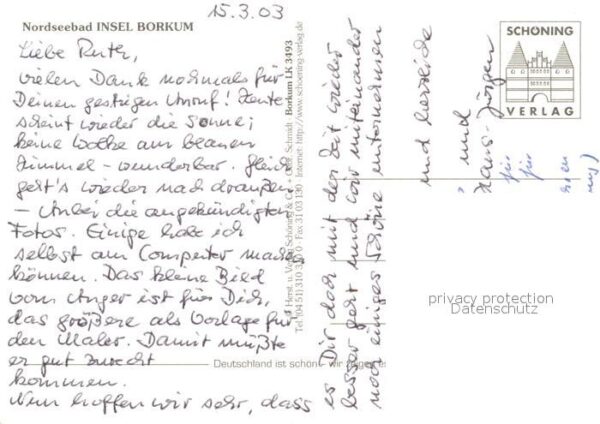 15.3.03
Nordseebad INSEL BORKUM
Liebe Ruth,
vielen Dank nochmals für
Deinen gestrigen Anruf! Heute
scheint wieder die Sonne;
keine Wolke am blauen
Himmel – wunderbar. Gleich
geht's wieder nach draußen
– Anbei die angekündigten
Fotos. Einige habe ich
selbst am Computer machen
können. Das kleine Bild
vom Anger ist für Dich,
das größere als Vorlage für
den Maler. Damit müßte
er gut zurecht
kommen.
Nun hoffen wir sehr, dass
es Dir doch mit der Zeit wieder
besser geht und wir miteinander
noch einiges Schöne unternehmen
und herzliche
und
Hans-Jürgen
für
für
Herst. u. Verlag Schöning & C
Schmidt Borkum LK 3493
Tel. (04 51) 310 3 0 · Fax 31 03 130 Internet: http://www.schoening-verlag.de
Deutschland ist schön - wir zeigen es
SCHÖNING
VERLAG
privacy protection
Datenschutz